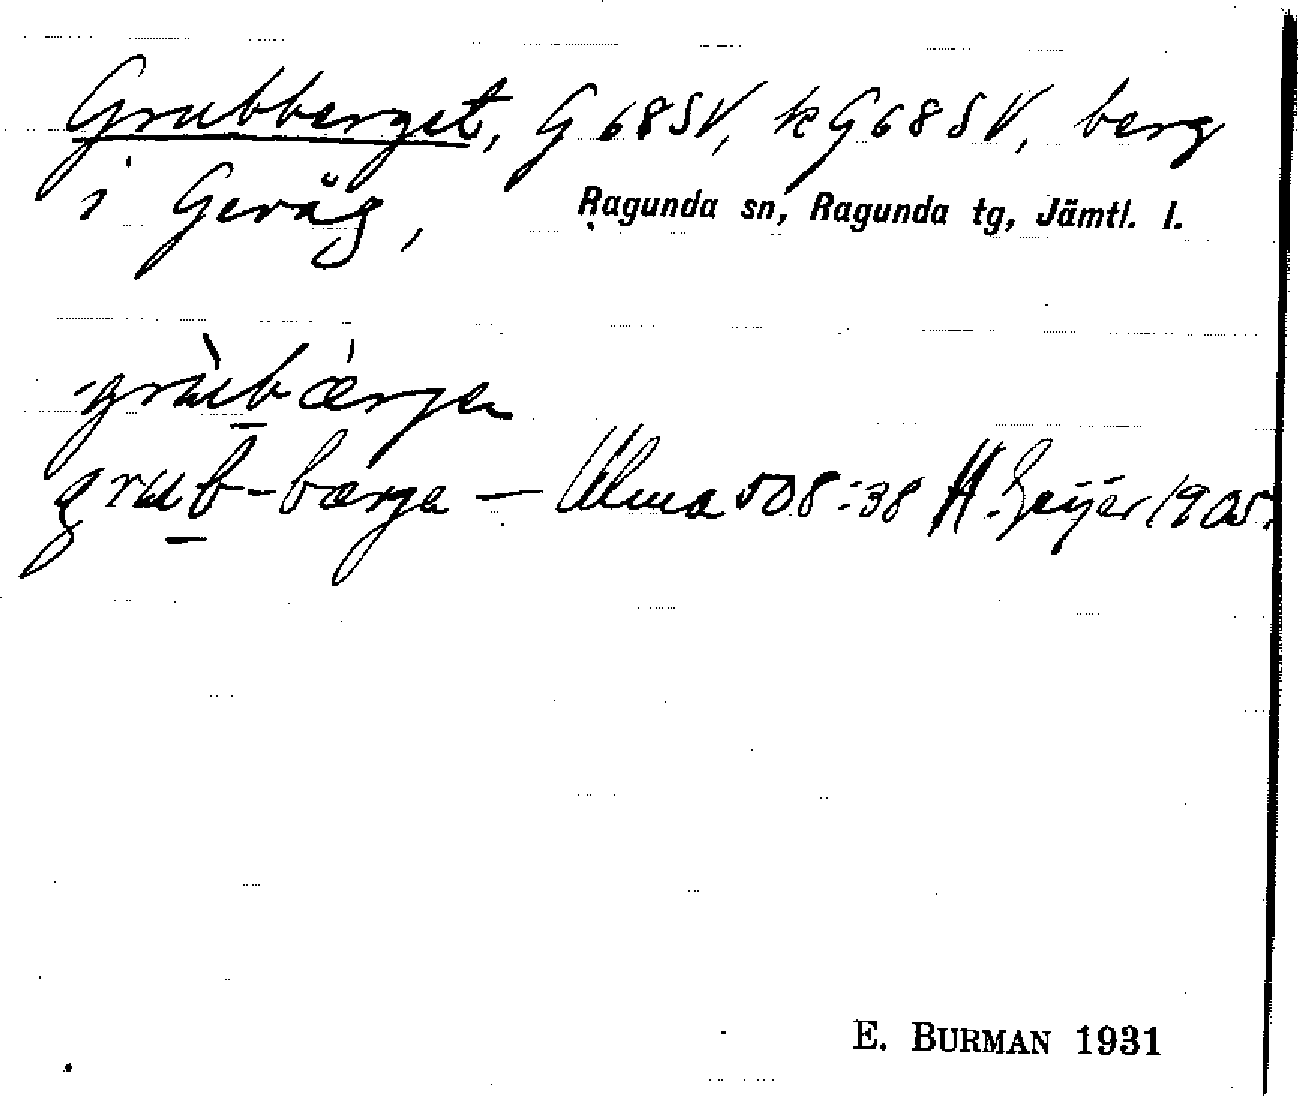 Grubberget, G 68 SV, k G 68 SV, berg
i Gevåg, Ragunda sn, Ragunda tg, Jämtl. l.
grùbbǽrge
grub-bærge — Ulma 508:38 H. Geijer 1905.
E. BURMAN 1931